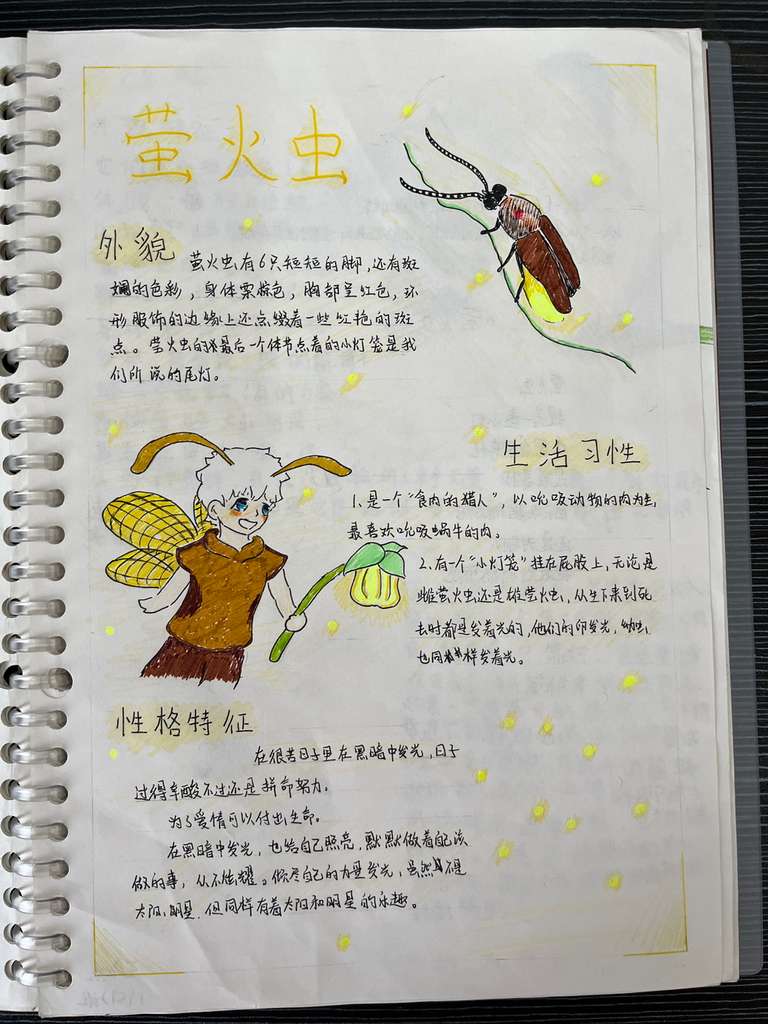 萤火虫
外貌
萤火虫有6只短短的脚,还有斑
斓的色彩,身体栗棕色,胸部呈红色,环
形服饰的边缘上还点缀着一些红艳的斑
点。萤火虫的最后一个体节点着的小灯笼是我
们所说的尾灯。
生活习性
1、是一个“食肉的猎人”,以吮吸动物的肉为主,
最喜欢吮吸蜗牛的肉。
2、有一个“小灯笼”挂在屁股上,无论是
雌萤火虫还是雄萤火虫,从生下来到死
去时都是发着光的,他们的卵发光,幼虫
也同样发着光。
性格特征
在很苦日子里在黑暗中发光,日子
过得辛酸不过还是拼命努力。
为了爱情可以付出生命。
在黑暗中发光,也给自己照亮,默默做着自己该
做的事,从不炫耀。倾尽自己的力量发光,虽然不是
太阳、明星,但同样有着太阳和明星的乐趣。